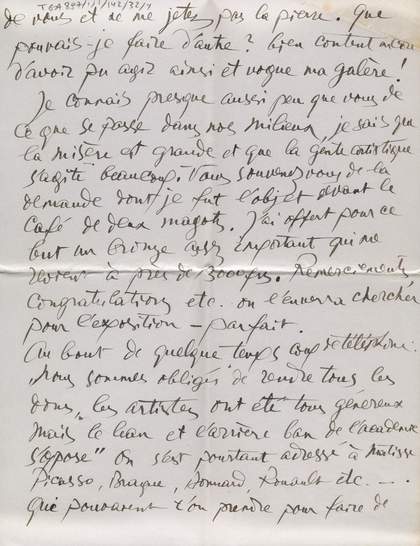 TGA 897/1/1/42/32/4
de vous et ne me jetez pas la pierre. Que
pouvais-je faire d'autre? bien content encore
d'avoir pu agir ainsi et vogue ma galère!
Je connais presque aussi peu que vous de
ce que se passe dans nos milieux, je sais que
la misère est grande et que la gente artistique
s'agite beaucoup. Vous souvenez vous de la
demande dont je fut l'objet devant le
Café de deux magots. J'ai offert pour ce
but un bronze assez important qui me
revient à près de 3000 frs. Remerciements,
Congratulations etc. on l'enverra chercher
pour l'exposition – parfait.
Au bout de quelque temps coup de téléphone:
"Nous sommes obligés de rendre tous les
dons, les artistes ont été tous genereux
mais le ban et l'arrière ban de l'academie
s'opose" On s'est pourtant adressé à Matisse
Picasso, Braque, Bonnard, Rouault etc. – .
Que pouvaient t'on prendre pour faire de